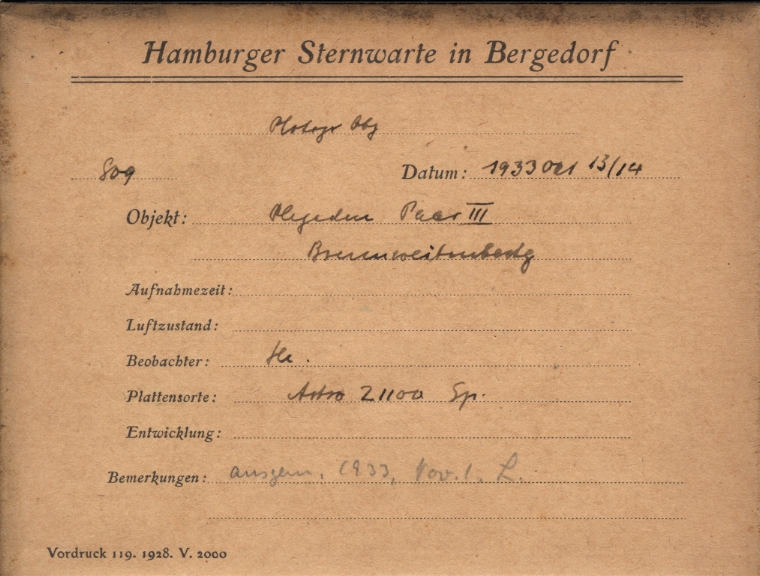 Hamburger Sternwarte in Bergedorf
Photogr Obj
809 Datum: 1933 Okt 13/14
Objekt: Plejaden Paar III
Brennweitenbestg
Aufnahmezeit:
Luftzustand:
Beobachter:
Plattensorte: Astro Sp.
Entwicklung:
Bemerkungen: ausgem. 1933, Nov. 1. L.
Vordruck 119. 1928. V. 2000